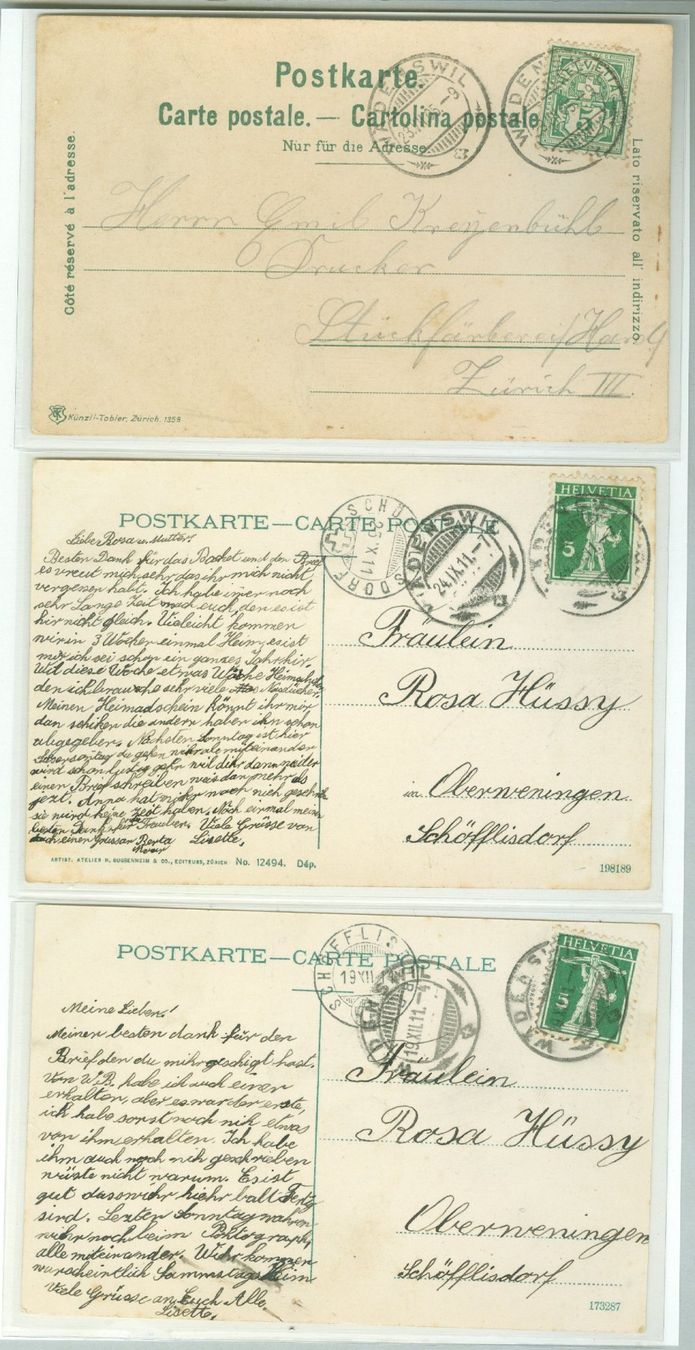 Postkarte.
Carte postale. — Cartolina postale.
Nur für die Adresse.
Côté réservé à l'adresse.
Lato riservato all' indirizzo.
WÄDENSWIL
HELVETIA
5
Herrn Emil Kreyenbühl
Drucker
Stückfärberei/Hard
Zürich III.
Künzli-Tobler, Zürich. 1358
POSTKARTE—CARTE POSTALE
WÄDENSWIL
24.IX.11.-7
HELVETIA
5
Liebe Rosa u. Mutter!
Besten Dank für das Packet und den Brief
es vreut mich sehr das ihr mich nicht
vergessen habt. Ich habe imer noch
sehr Lange Zeit nach euch, den es ist
hir nicht gleich. Vieleicht kommen
wir in 3 Wochen einmal Heim, es ist
mir ich sei schon ein ganzes Jahr hir.
Wil diese Woche etwas Wäsche Heimschiken
den ich brauche sehr viele Nastücher.
Meinen Heimadschein könnt ihr mir
dan schiken die andern haben ihn schon
abgegeben. Nächsten Sonntag ist hier
einen Brief schreiben weis dan mehr als
jezt. Anna hat mihr noch nich geschrieben
sie wird keine Zeit haben. Noch eimal meinen
besten Dank für Trauben. Viele Grüsse von
Lisette.
Fräulein
Rosa Hüssy
in Oberweningen
Schöfflisdorf
ARTIST. ATELIER H. GUGGENHEIM & CO., EDITEURS, ZÜRICH No. 12494. Dép.
198189
POSTKARTE—CARTE POSTALE
SCHÖFFLISDORF
19 XII
WÄDENSWIL
19.XII.11.-4
HELVETIA
5
Meine Lieben!
Meinen besten dank für den
Brief den du mihr geschigt hast.
Von W.B. habe ich auch einen
erhalten, aber es war der erste,
ich habe sonst noch nik etwas
von ihm erhalten. Ich habe
ihm auch noch nik geschrieben
wüste nicht warum. Es ist
gut dass wihr hiehr balt Fertg
sind. Lezten Sonntag wahren
wihr noch beim Photograph,
alle miteinander. Wihr kommen
warscheintlich Sammstags Heim
Viele Grüsse an Euch Alle
Lisette.
Fräulein
Rosa Hüssy
Oberweningen
Schöfflisdorf
173287